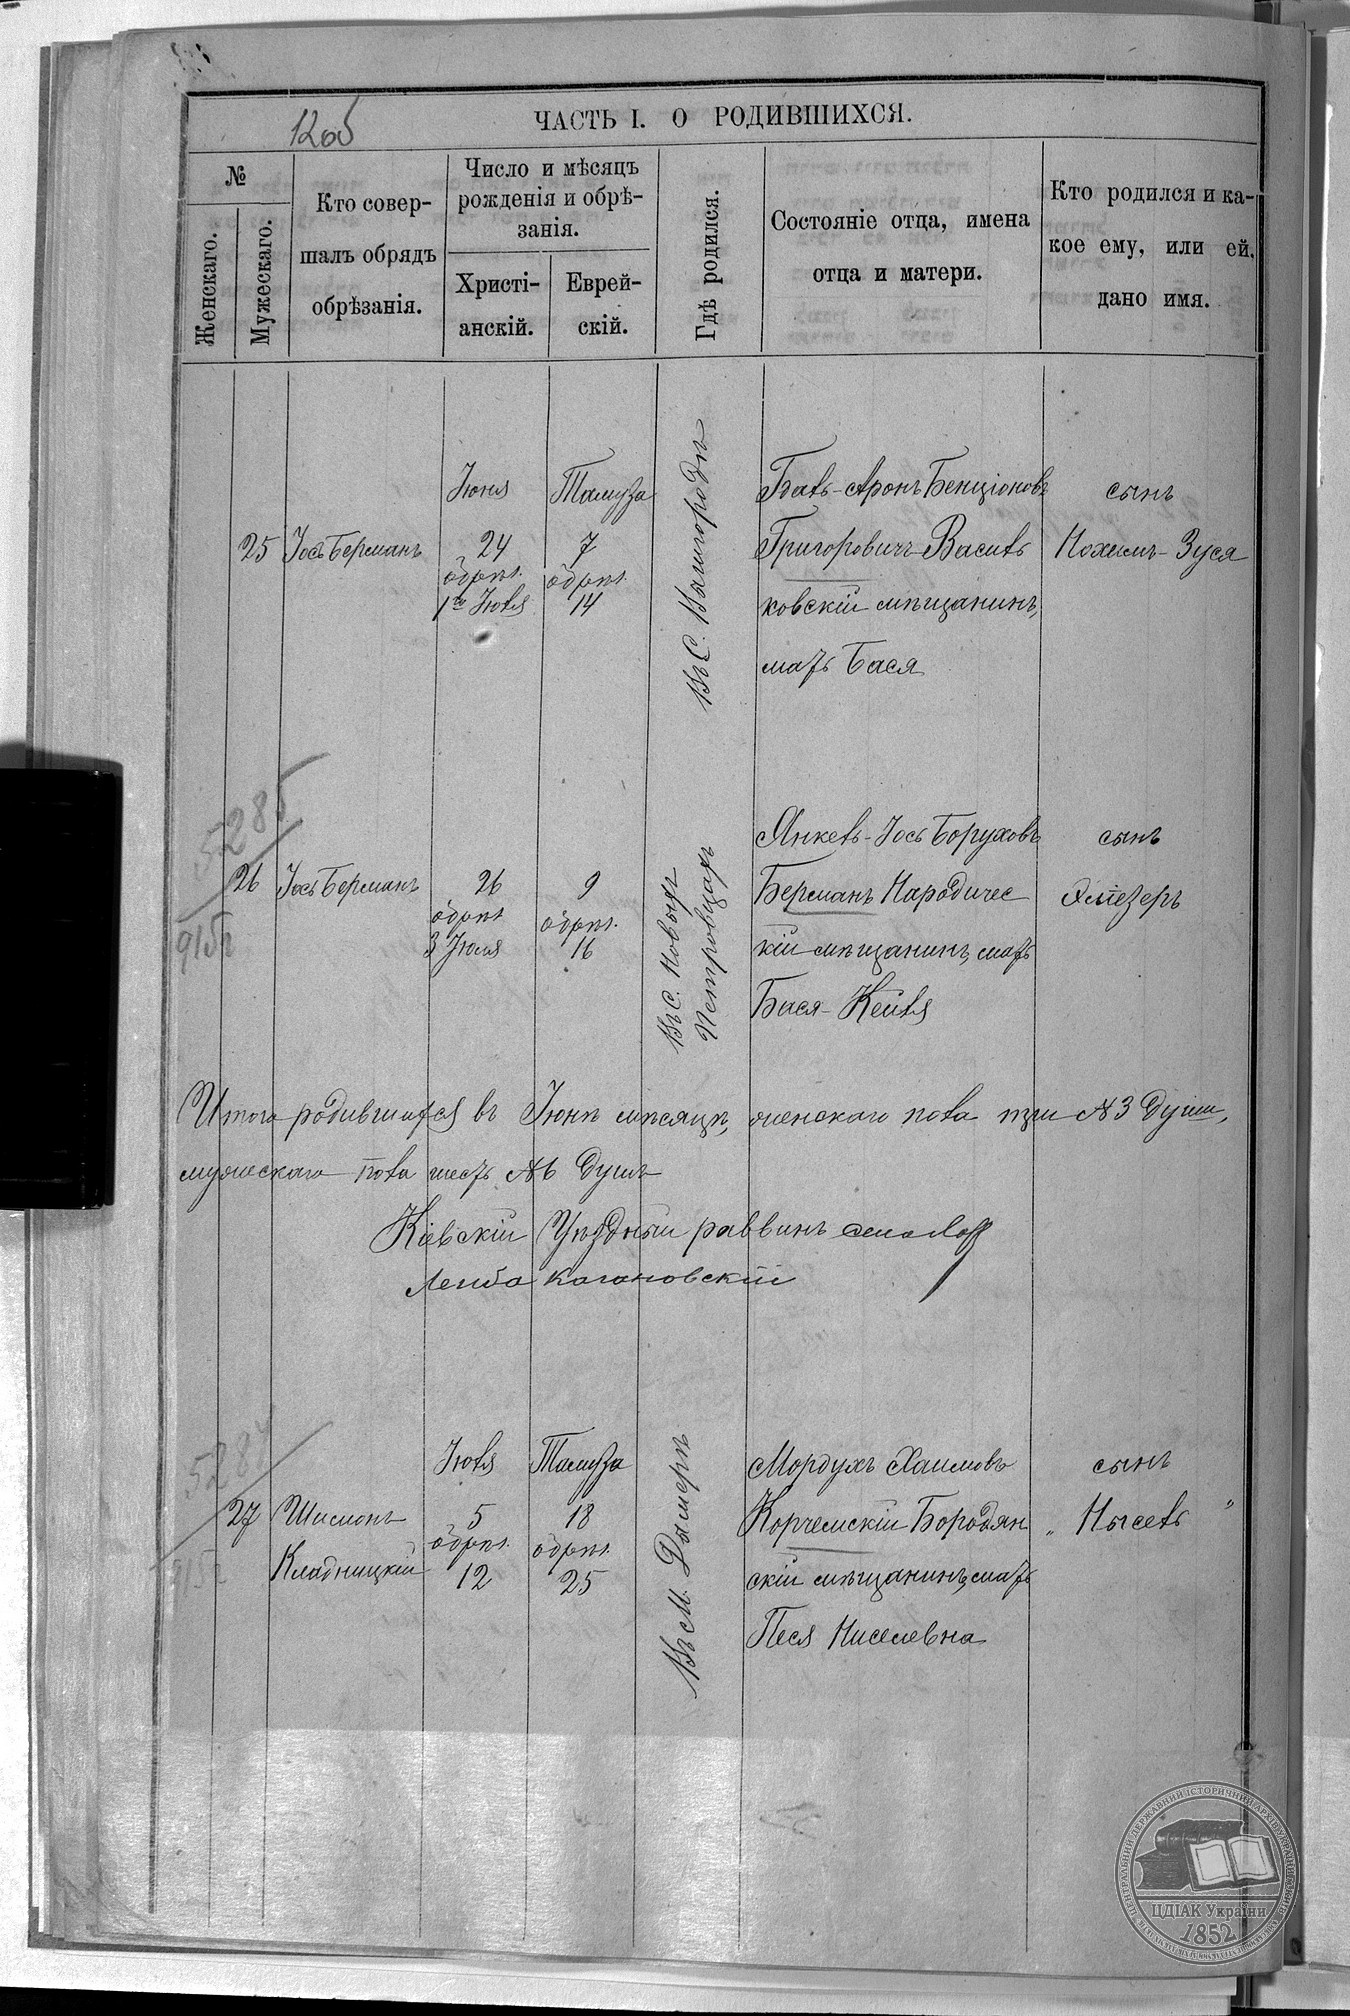 12об
ЧАСТЬ I. О РОДИВШИХСЯ.
№
Женскаго.
Мужескаго.
Кто совер-
шалъ обрядъ
обрѣзанія.
Число и мѣсяцъ
рожденія и обрѣ-
занія.
Христі-
анскій.
Еврей-
скій.
Гдѣ родился.
Состояніе отца, имена
отца и матери.
Кто родился и ка-
кое ему, или ей,
дано имя.
25
Іось Берманъ
Іюня
24
обрѣз.
1го Іюля
Тамуза
7
обрѣз.
14
Въ С. Вышгородѣ
Аронъ Бенціоновъ
Григоровичъ Василь
ковскій мѣщанинъ,
мать Бася
сынъ
Нохимъ-Зуся
5286
26
915г
Іось Берманъ
26
обрѣз.
3 Іюля
9
обрѣз.
16
Въ С. Новыхъ
Петровцахъ
Янкель-Іось Боруховъ
Берманъ Народичес
кій мѣщанинъ, мать
Бася-Кейля
сынъ
Эліезеръ
Итого родившихся въ Іюнѣ мѣсяцѣ, женскаго пола три №3 души,
мужескаго пола шесть №6 душъ
Кіевскій Уѣздный раввинъ
Лейба Кагановскій
5287
27
915г
Шимонъ
Кладницкій
Іюля
5
обрѣз.
12
Тамуза
18
обрѣз.
25
Въ М. Дымерѣ
Мордухъ Хаимовъ
Корчемскій Бородян
скій мѣщанинъ, мать
Песя Ниселевна
сынъ
„ Нысель "
ЦЕНТРАЛЬНИЙ ДЕРЖАВНИЙ ІСТОРИЧНИЙ АРХІВ УКРАЇНИ
ЦДІАК України
1852